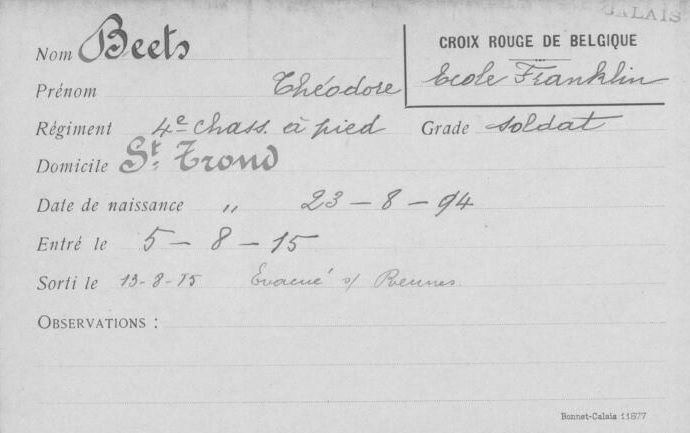 CALAIS
Nom Beets
CROIX ROUGE DE BELGIQUE
Ecole Franklin
Prénom Théodore
Régiment 4e chass. à pied Grade soldat
Domicile St. Trond
Date de naissance " 23 - 8 - 94
Entré le 5 - 8 - 15
Sorti le 13-8-15 Evacué s/ Rennes.
OBSERVATIONS :
Bonnet-Calais 11877